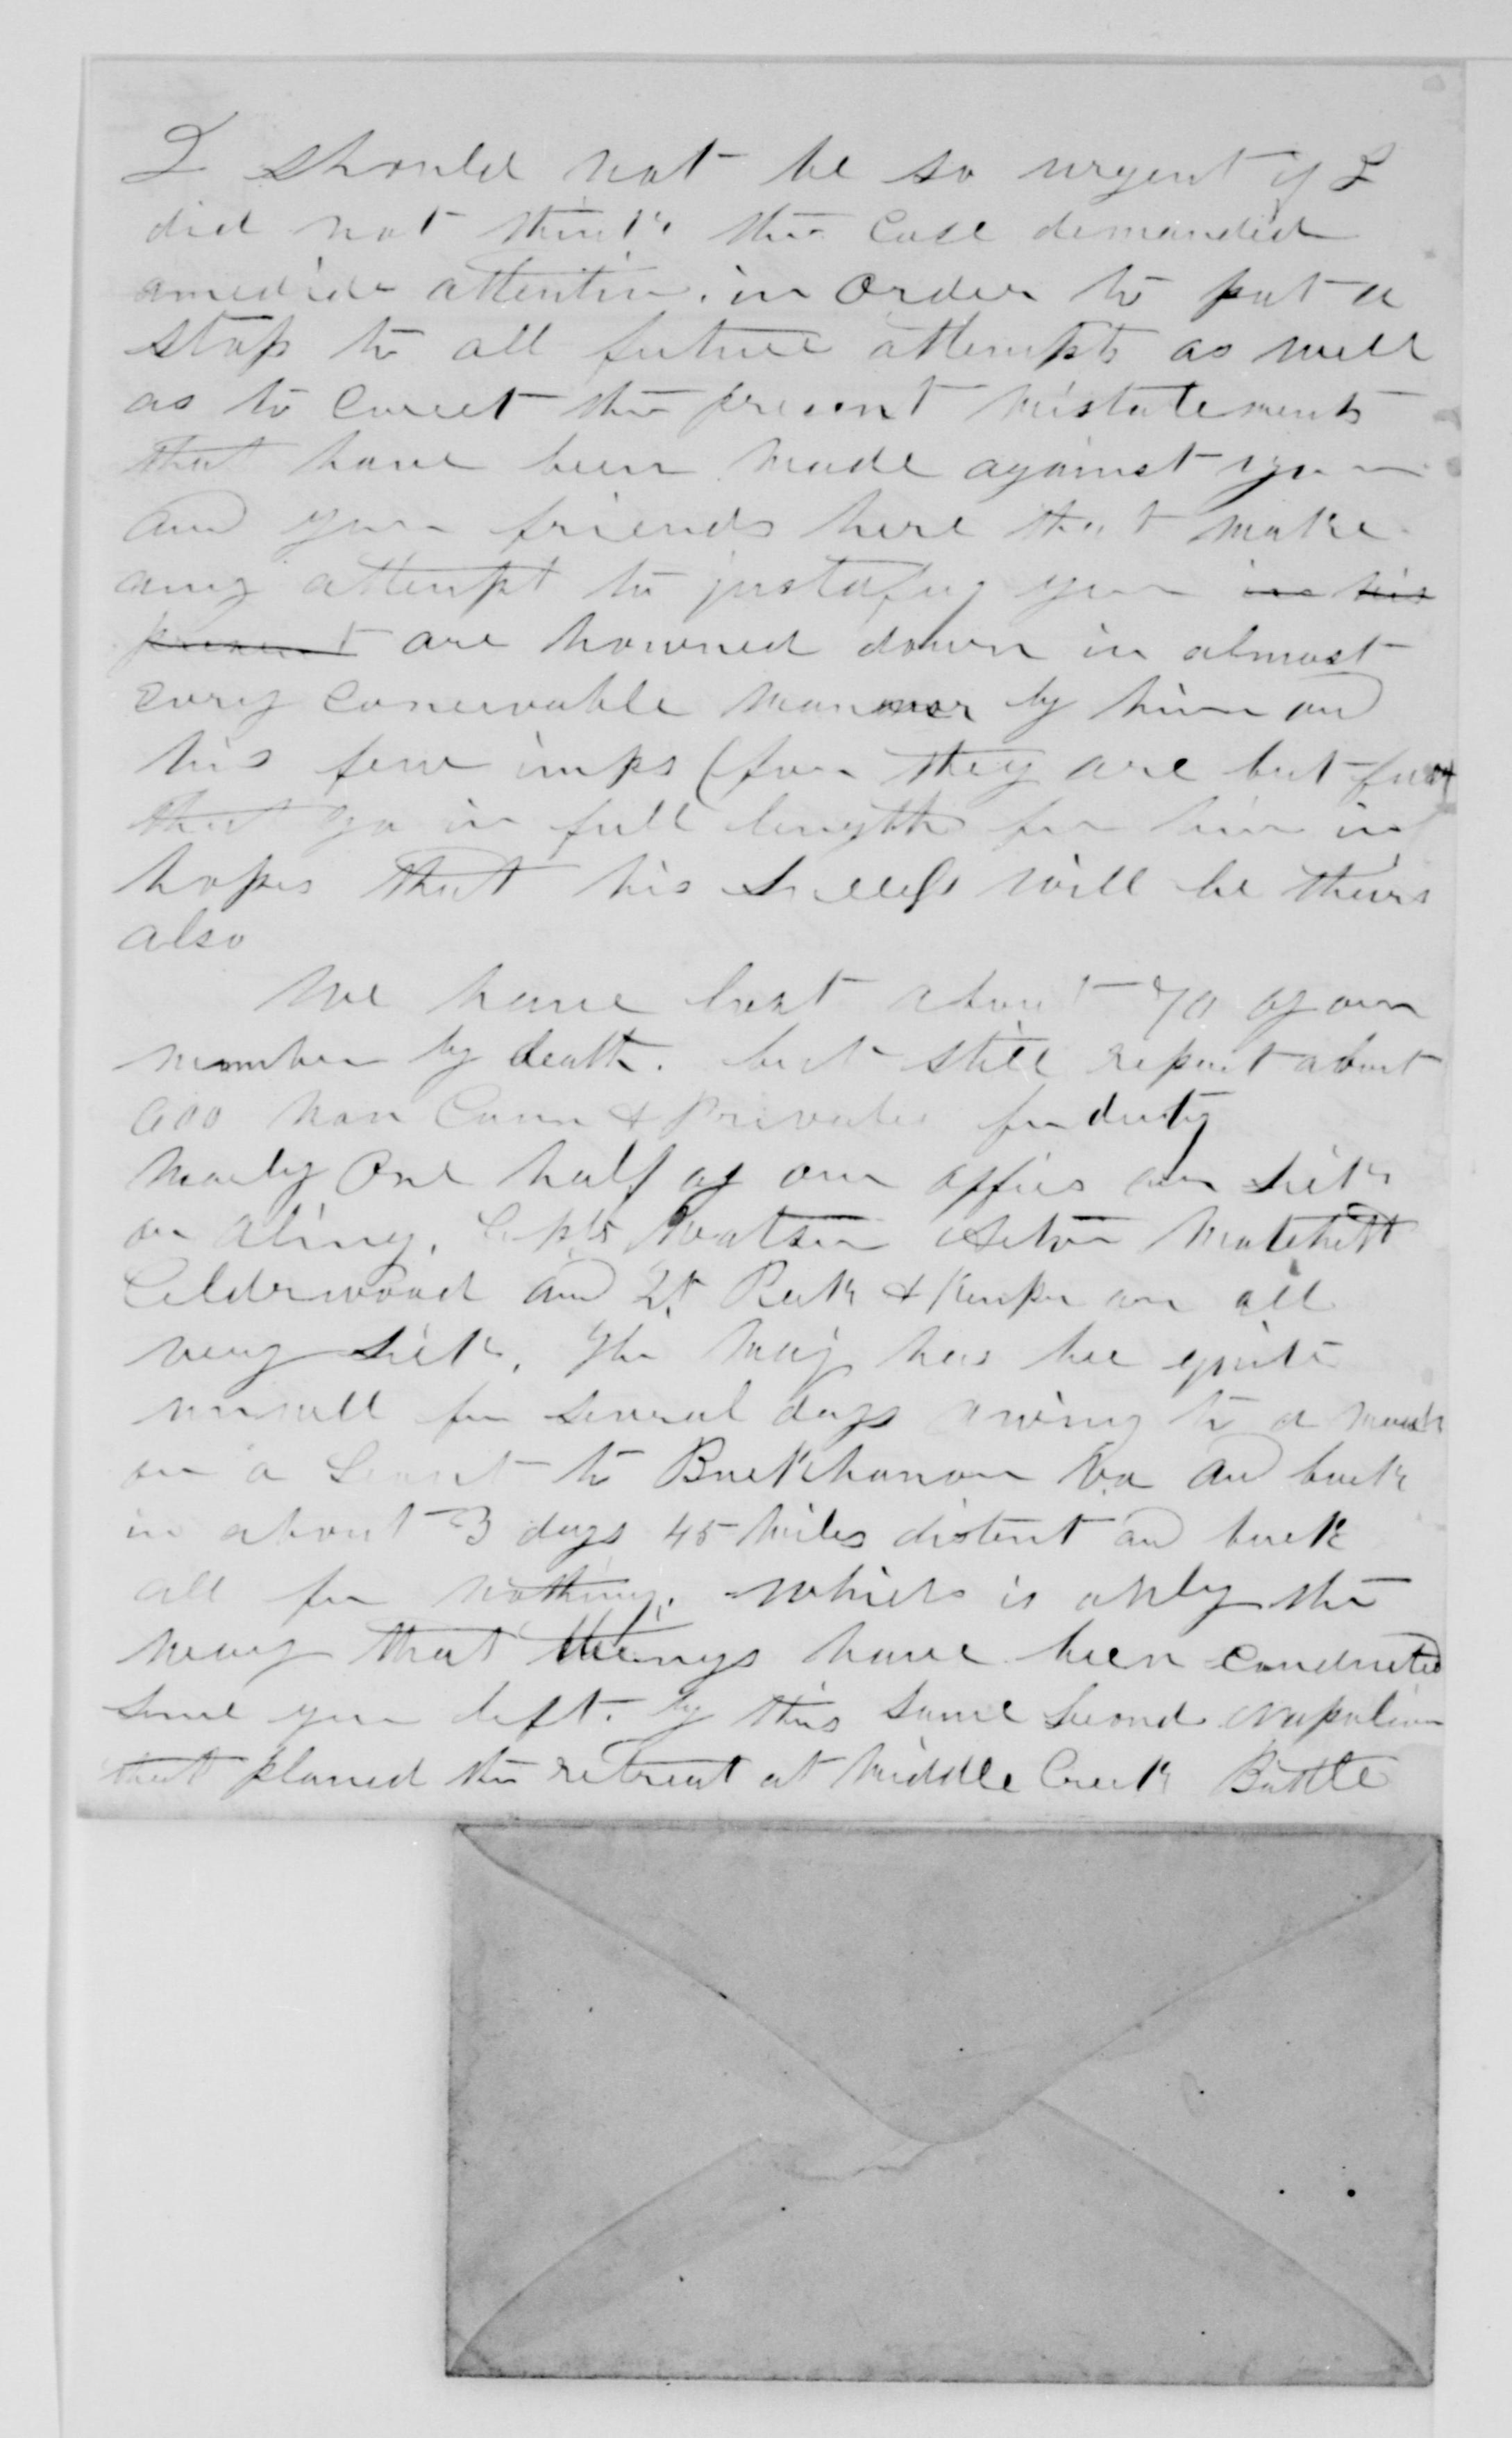 I should not be so urgent if I
did not think the case demanded
amediate attention. in order to put a
stop to all future attempts as well
as to correct the present mistatements
that have been made against you
and your friends here that make
any attempt to justafy you in his
present are howned down in almost
every conceivable manner by him and
his few imps (for they are but few
that go in full length for him in
hopes that his success will be theirs
also
We have lost about 70 of our
number by death. but still report about
600 Non Com & Privates for duty
Nearly one half of our offics are sick
or aling. Capts Watson Matchett
Calderwood and Lt. Beck & are all
very sick. The Maj has bee quite
unwell for several days owing to a march
on a Scout to Buckhanon Va and back
in about 3 days 45 miles distent and back
all for nothing. which is only the
way that things have been conducted
since you left. by this same second napolian
that planed the retreat at Middle Creek Battle